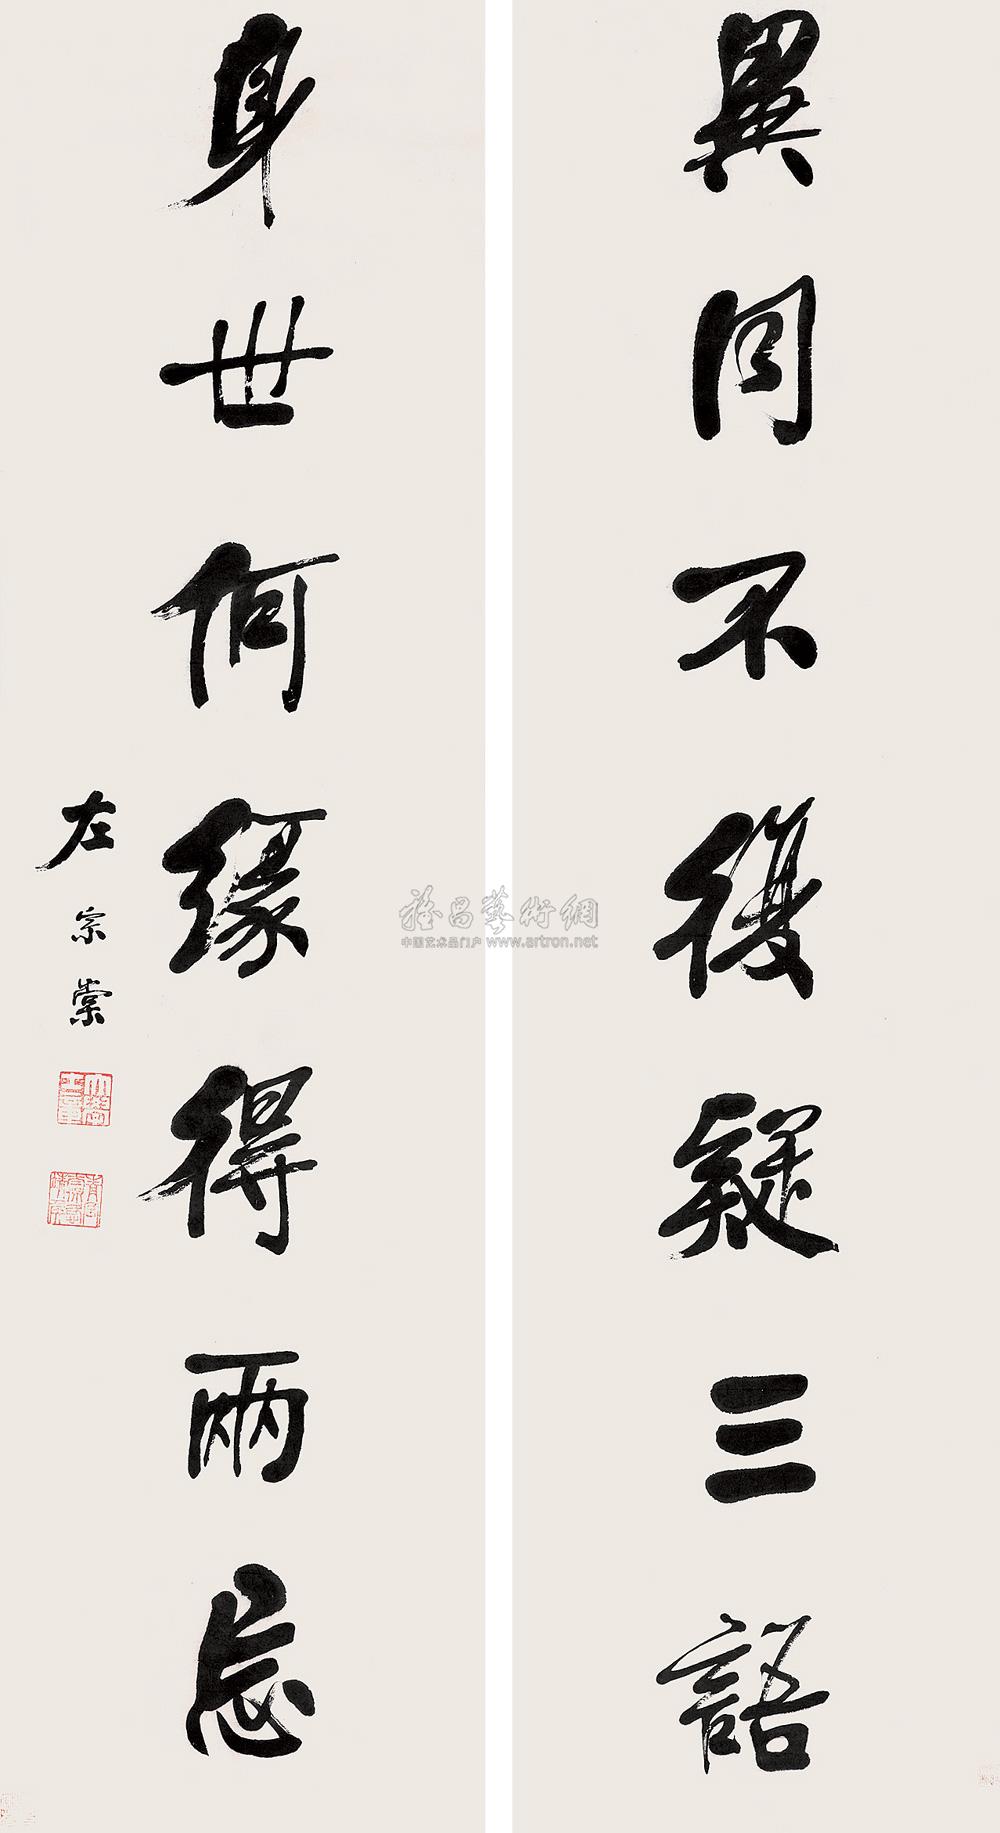 異同不復疑三語
身世何緣得兩忘
左宗棠
雅昌藝術網
中国艺术品门户 www.artron.net